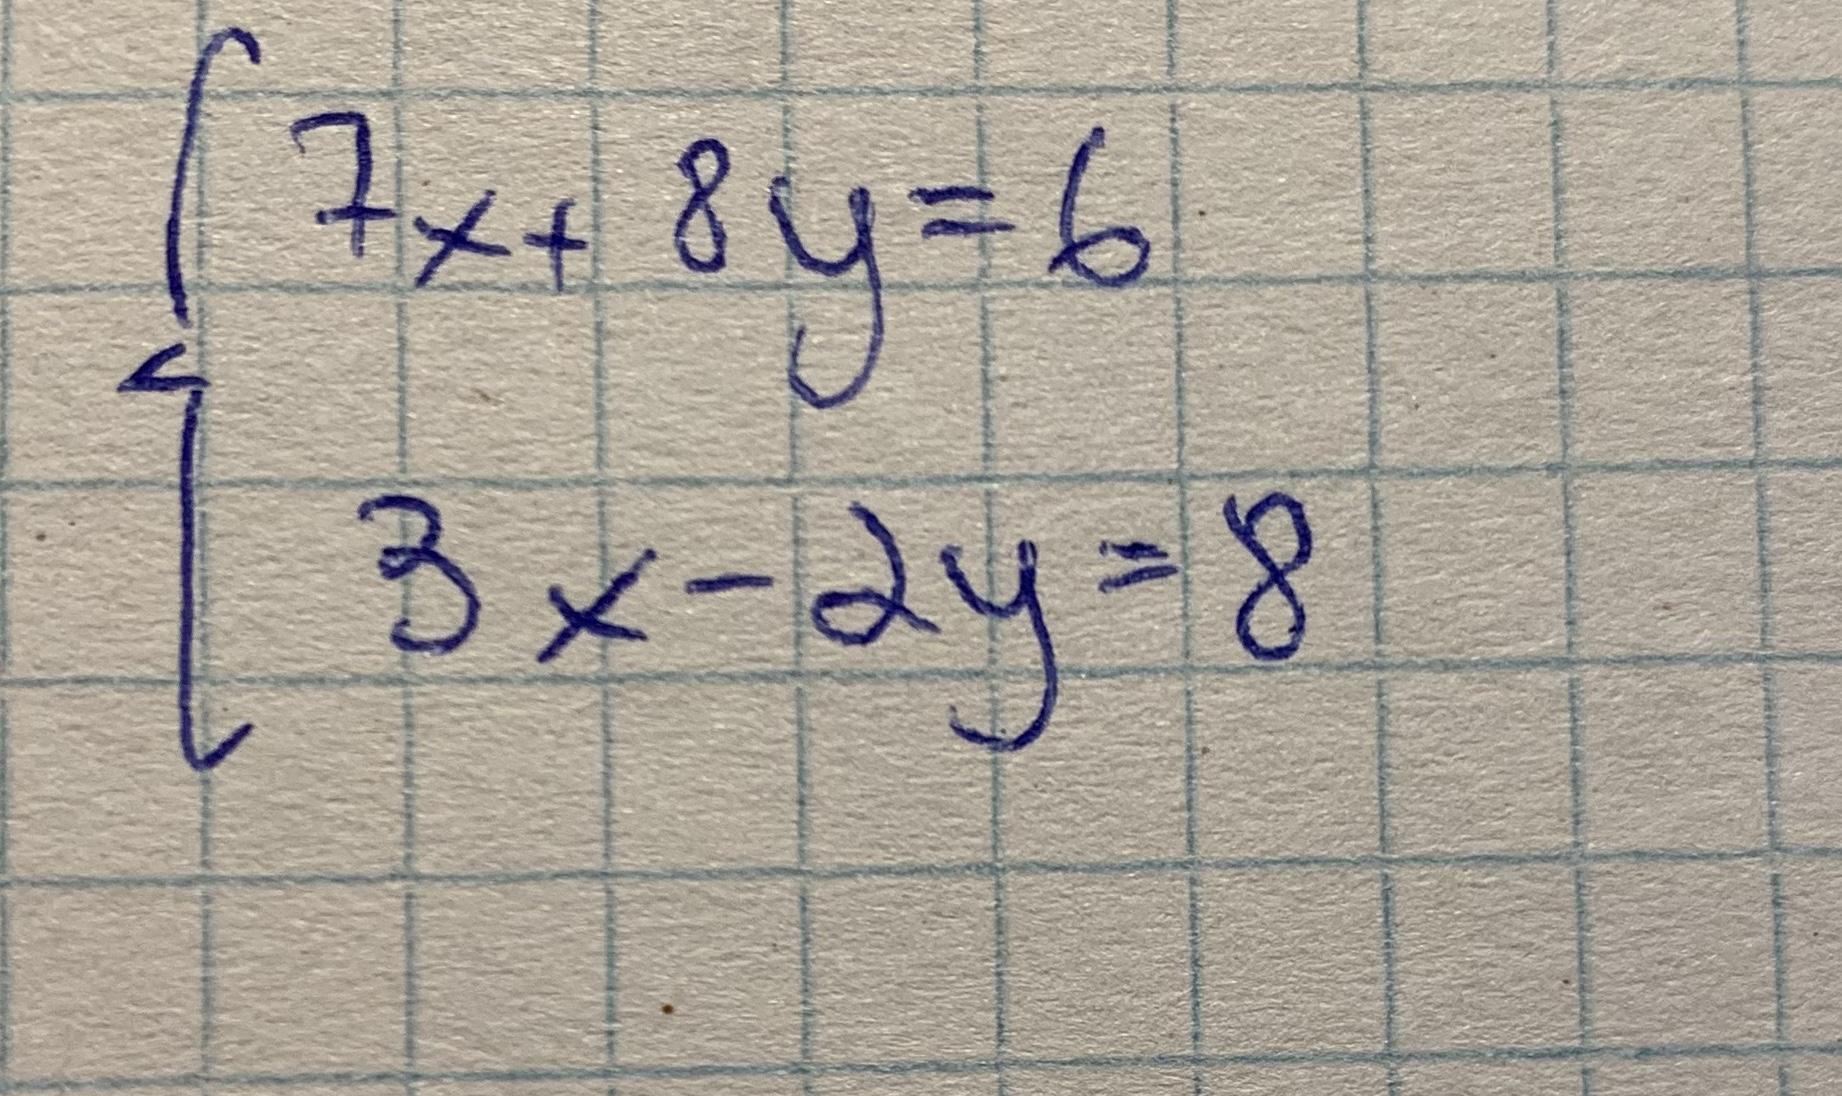 7x + 8y = 6
3x - 2y = 8